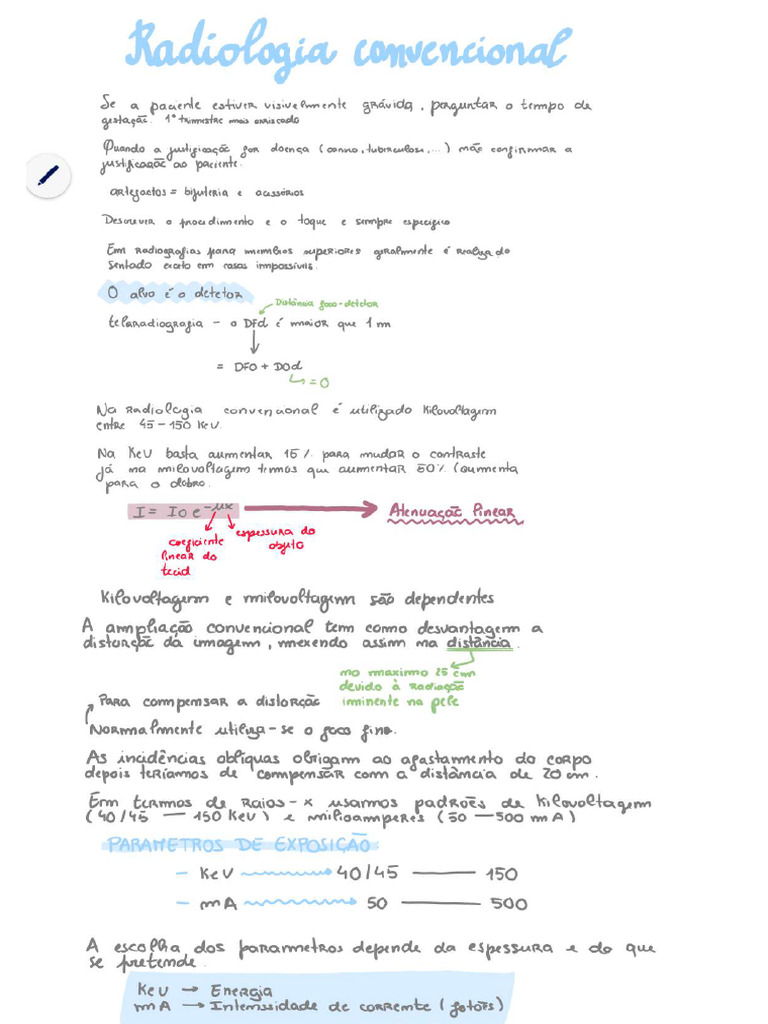 Radiologia convencional
Se a paciente estiver visivelmente grávida, perguntar o tempo de
gestação. 1º trimestre mais arriscado
Quando a justificação for doença (cancro, tuberculose, ...) não confirmar a
justificação ao paciente.
artefactos = bijuteria e acessórios
Descrever o procedimento e o toque e sempre específico
Em radiografias para membros superiores geralmente é realizado
sentado exceto em casos impossíveis.
O alvo é o detetor
Distância foco-detetor
teleradiografia - a DFd é maior que 1 m
= DFO + DOd
= 0
Na radiologia convencional é utilizado Kilovoltagem
entre 45-150 KeV.
Na KeV basta aumentar 15% para mudar o contraste
já na milovoltagem temos que aumentar 50% (aumenta
para o dobro.
I = Io e^-μx → Atenuação linear
coeficiente linear do tecid
espessura do objeto
Kilovoltagem e milovoltagem são dependentes
A ampliação convencional tem como desvantagem a
distorção da imagem, mexendo assim na distância.
no maximo 25 cm
devido à radiação
iminente na pele
Para compensar a distorção
Normalmente utiliza-se o foco fino.
As incidências obliquas obrigam ao afastamento do corpo
depois teríamos de compensar com a distância de 20 cm.
Em termos de raios-x usarmos padrões de Kilovoltagem
(40/45 — 150 KeV) e miliamperes (50 — 500 mA)
PARAMETROS DE EXPOSIÇÃO
- KeV → 40/45 — 150
- mA → 50 — 500
A escolha dos parametros depende da espessura e do que
se pretende.
KeV → Energia
mA → Intenssidade de corrente (fotões)